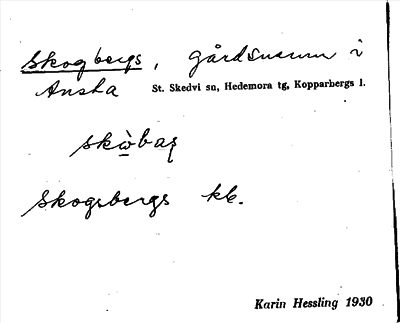 Skogbergs, gårdsnamn i
Ansta St. Skedvi sn, Hedemora tg, Kopparbergs l.
Skogsbergs kb.
Karin Hessling 1930